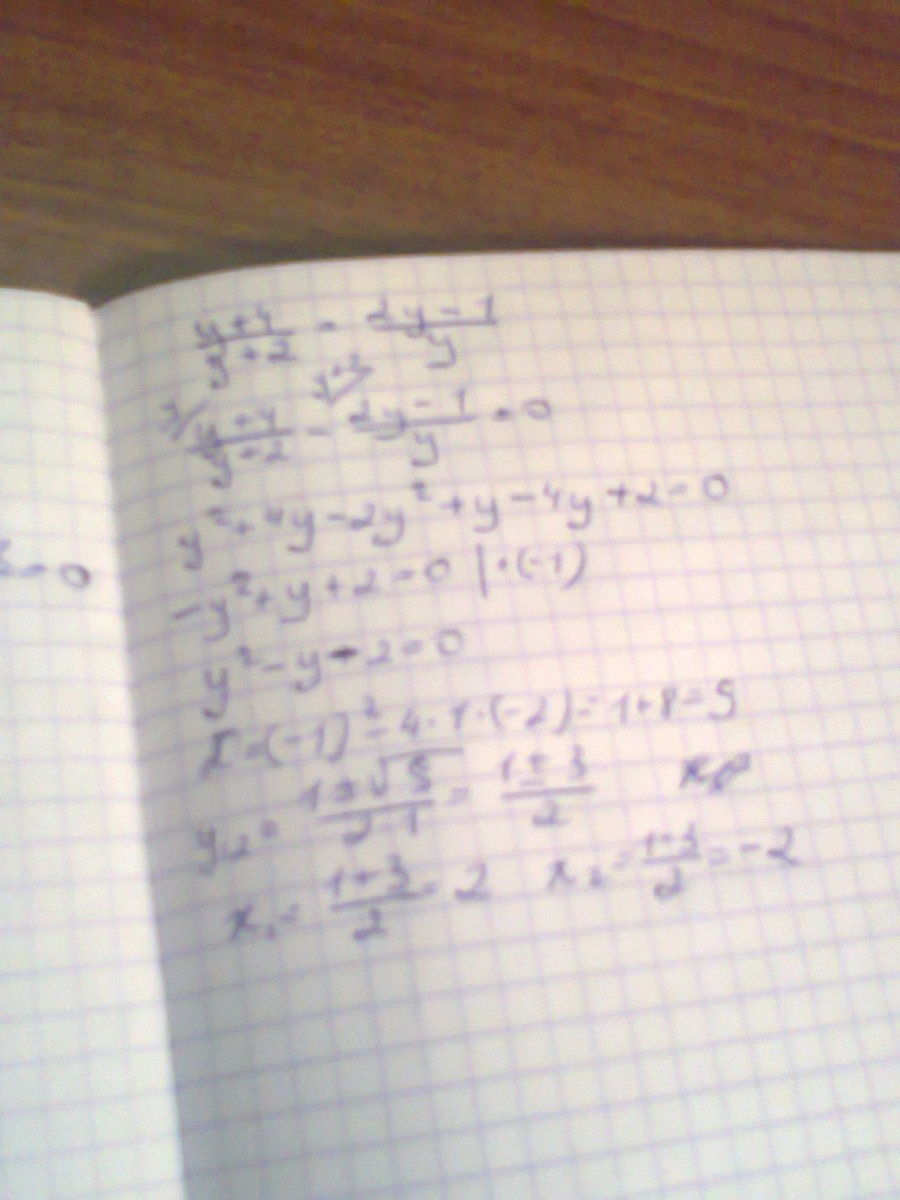 z = 0
(y+4)/(y+2) = (2y-1)/y
y/ (y+4)/(y+2) - y+2/ (2y-1)/y = 0
y² + 4y - 2y² + y - 4y + 2 = 0
-y² + y + 2 = 0 | · (-1)
y² - y - 2 = 0
D = (-1)² - 4 · 1 · (-2) = 1 + 8 = 9
y₁,₂ = (1 ± √9)/(2·1) = (1 ± 3)/2
x₁ = (1+3)/2 = 2 x₂ = (1-3)/2 = -2